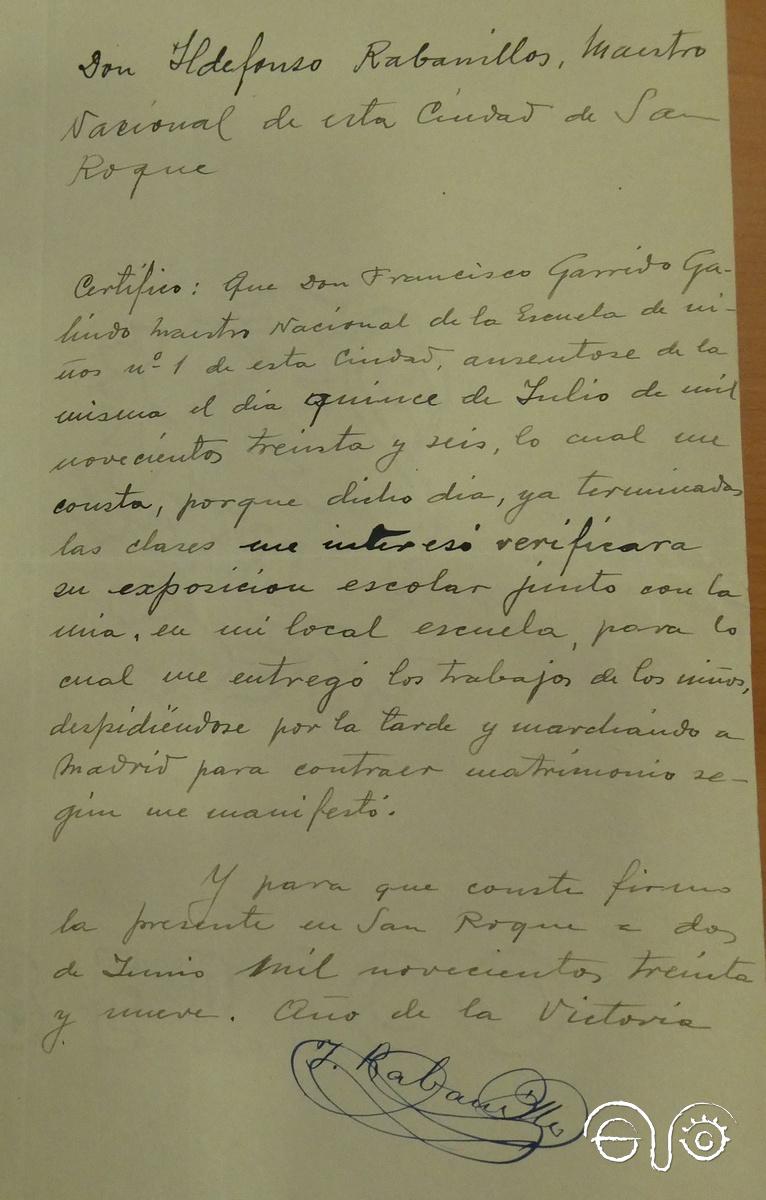 Don Ildefonso Rabanillos, Maestro
Nacional de esta Ciudad de San
Roque
Certifico: Que Don Francisco Garrido Ga-
lindo Maestro Nacional de la Escuela de ni-
ños nº 1 de esta Ciudad, ausentose de la
misma el dia quince de Julio de mil
novecientos treinta y seis, lo cual me
consta, porque dicho dia, ya terminadas
las clases me interesó verificara
su exposicion escolar junto con la
mia, en mi local escuela, para lo
cual me entregó los trabajos de los niños,
despidiéndose por la tarde y marchando a
Madrid para contraer matrimonio se-
gún me manifestó.
Y para que conste firmo
la presente en San Roque a dos
de Junio mil novecientos treinta
y nueve. Año de la Victoria
I. Rabanillos